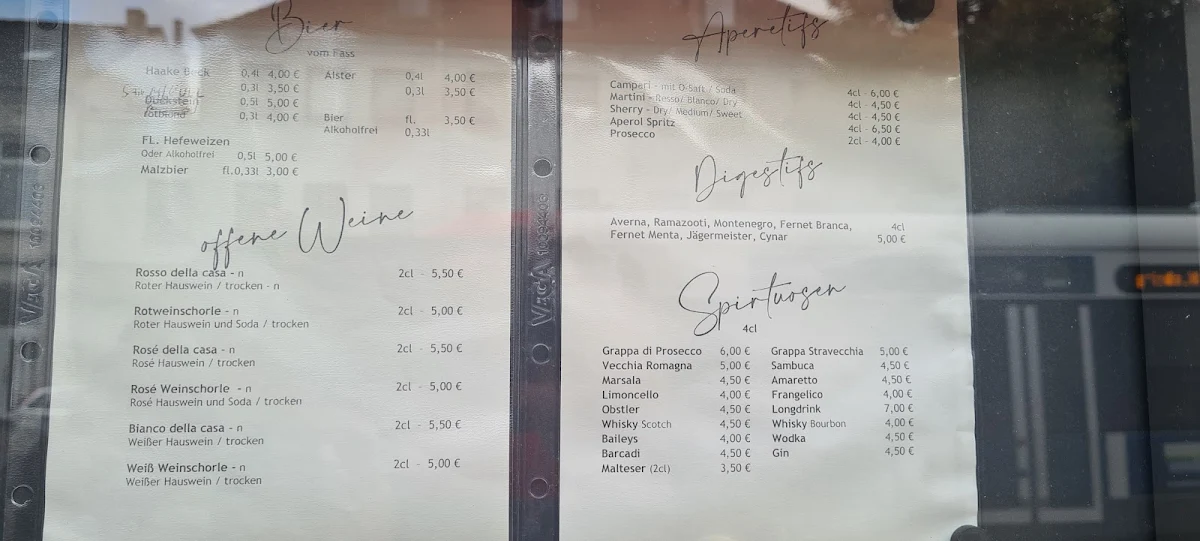 Bier
vom Fass
Haake Beck 0,4l 4,00 € Alster 0,4l 4,00 €
0,3l 3,50 € 0,3l 3,50 €
Duckstein 0,5l 5,00 €
rotblond 0,3l 4,00 € Bier fl. 3,50 €
Alkoholfrei 0,33l
FL. Hefeweizen
Oder Alkoholfrei 0,5l 5,00 €
Malzbier fl.0,33l 3,00 €
offene Weine
Rosso della casa - n 2cl - 5,50 €
Roter Hauswein / trocken - n
Rotweinschorle - n 2cl - 5,00 €
Roter Hauswein und Soda / trocken
Rosé della casa - n 2cl - 5,50 €
Rosé Hauswein / trocken
Rosé Weinschorle - n 2cl - 5,00 €
Rosé Hauswein und Soda / trocken
Bianco della casa - n 2cl - 5,50 €
Weißer Hauswein / trocken
Weiß Weinschorle - n 2cl - 5,00 €
Weißer Hauswein / trocken
Aperetifs
Campari - mit O-Saft / Soda 4cl - 6,00 €
Martini - Rosso/ Blanco/ Dry 4cl - 4,50 €
Sherry - Dry/ Medium/ Sweet 4cl - 4,50 €
Aperol Spritz 4cl - 6,50 €
Prosecco 2cl - 4,00 €
Digestifs
Averna, Ramazooti, Montenegro, Fernet Branca, 4cl
Fernet Menta, Jägermeister, Cynar 5,00 €
Spirtuosen
4cl
Grappa di Prosecco 6,00 € Grappa Stravecchia 5,00 €
Vecchia Romagna 5,00 € Sambuca 4,50 €
Marsala 4,50 € Amaretto 4,50 €
Limoncello 4,00 € Frangelico 4,00 €
Obstler 4,50 € Longdrink 7,00 €
Whisky Scotch 4,50 € Whisky Bourbon 4,00 €
Baileys 4,00 € Wodka 4,50 €
Barcadi 4,50 € Gin 4,50 €
Malteser (2cl) 3,50 €